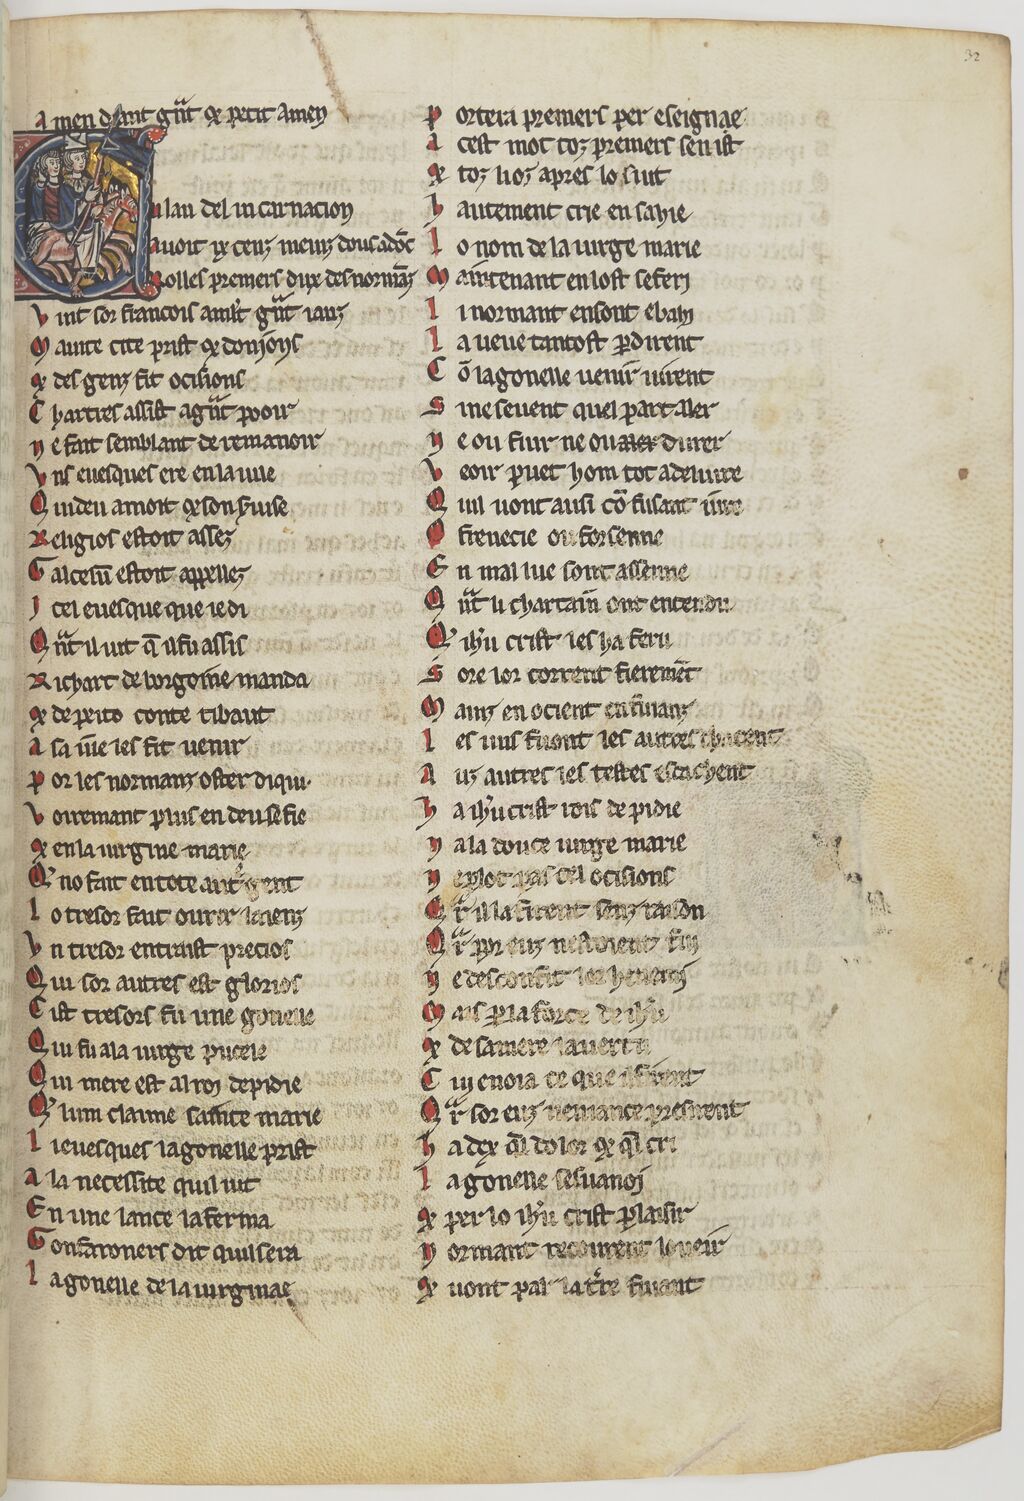 32
Amen dient gñt ⁊ petit amen
ulan del incarnacion
Auoit ix cenz menz dous adõc
Rolles premers dux des normãz
Vint sor francois
Mainte cite prist ⁊ donjons
⁊ des genz fit ocisions
Chartres assist a gñt pooir
Ne fait semblant de remanoir
Vns euesques ere en la uile
Qui deu amoit ⁊ son seruise
Religios estoit assez
Galcesũ estoit appellez
Icel euesque que ie di
Qñt il uit q̃ il fu assis
Richart de borgoine manda
⁊ de peito conte tibaut
A sa uile les fit uenir
Por les normanz oster diqui
Voiremant plus en deu se fie
⁊ en la uirgine marie
Q'no fait en tote autr̃ gent
Lo tresor fait ourir laienz
Vn tresor en traist precios
Qui sor autres est glorios
Cist tresors fu une gonelle
Qui fu a la uirge pucele
Qui mere est al roi de pidie
Q'lum claime sainte marie
Li euesques la gonelle prist
A la necessite quil uit
En une lance la ferma
Gonfaroners dit quil sera
La gonelle de la uirginae
Portera premers per eseignae
A cest mot toz premers sen ist
⁊ toz li oz apres lo siut
Hautement crie en sa uie
Lo nom de la uirge marie
Maintenant en lost se feri
Li normant en sont ebahi
La ueue tantost perdirent
Cõ la gonelle uenir uirent
Si ne seuent quel part aler
Ne ou fuir ne ou durer
Veoir puet hom tot a deliure
Qui uont ausi cõ fusant iure
O frenecie ou forsenne
En mal lue sont assenne
Qñt li chartain ont entendu
Q'ihũ crist les ha feru
Sore lor corrent fierement
Mainz en ocient en fuianz
Les uns fuiont les autres chacent
A uz autres les testes esrachent
Ha ihũ crist rois de pidie
Ne a la douce uirge marie
Ne plot pas cel ocisions
Qr il la firent senz raison
Qr por euz nestoient fuii
Ne desconfit lor henemis
Mais per la force de ihũ
⁊ de sa mere la uertu
Cui enoia ce que il firent
Qr sor euz ueniance presirent
Ha dex quel dolor ⁊ quel cri
La gonelle sesuanoi
⁊ per lo ihũ crist plaisir
Normant recourent lo ueir
⁊ uont par la terre fuiant